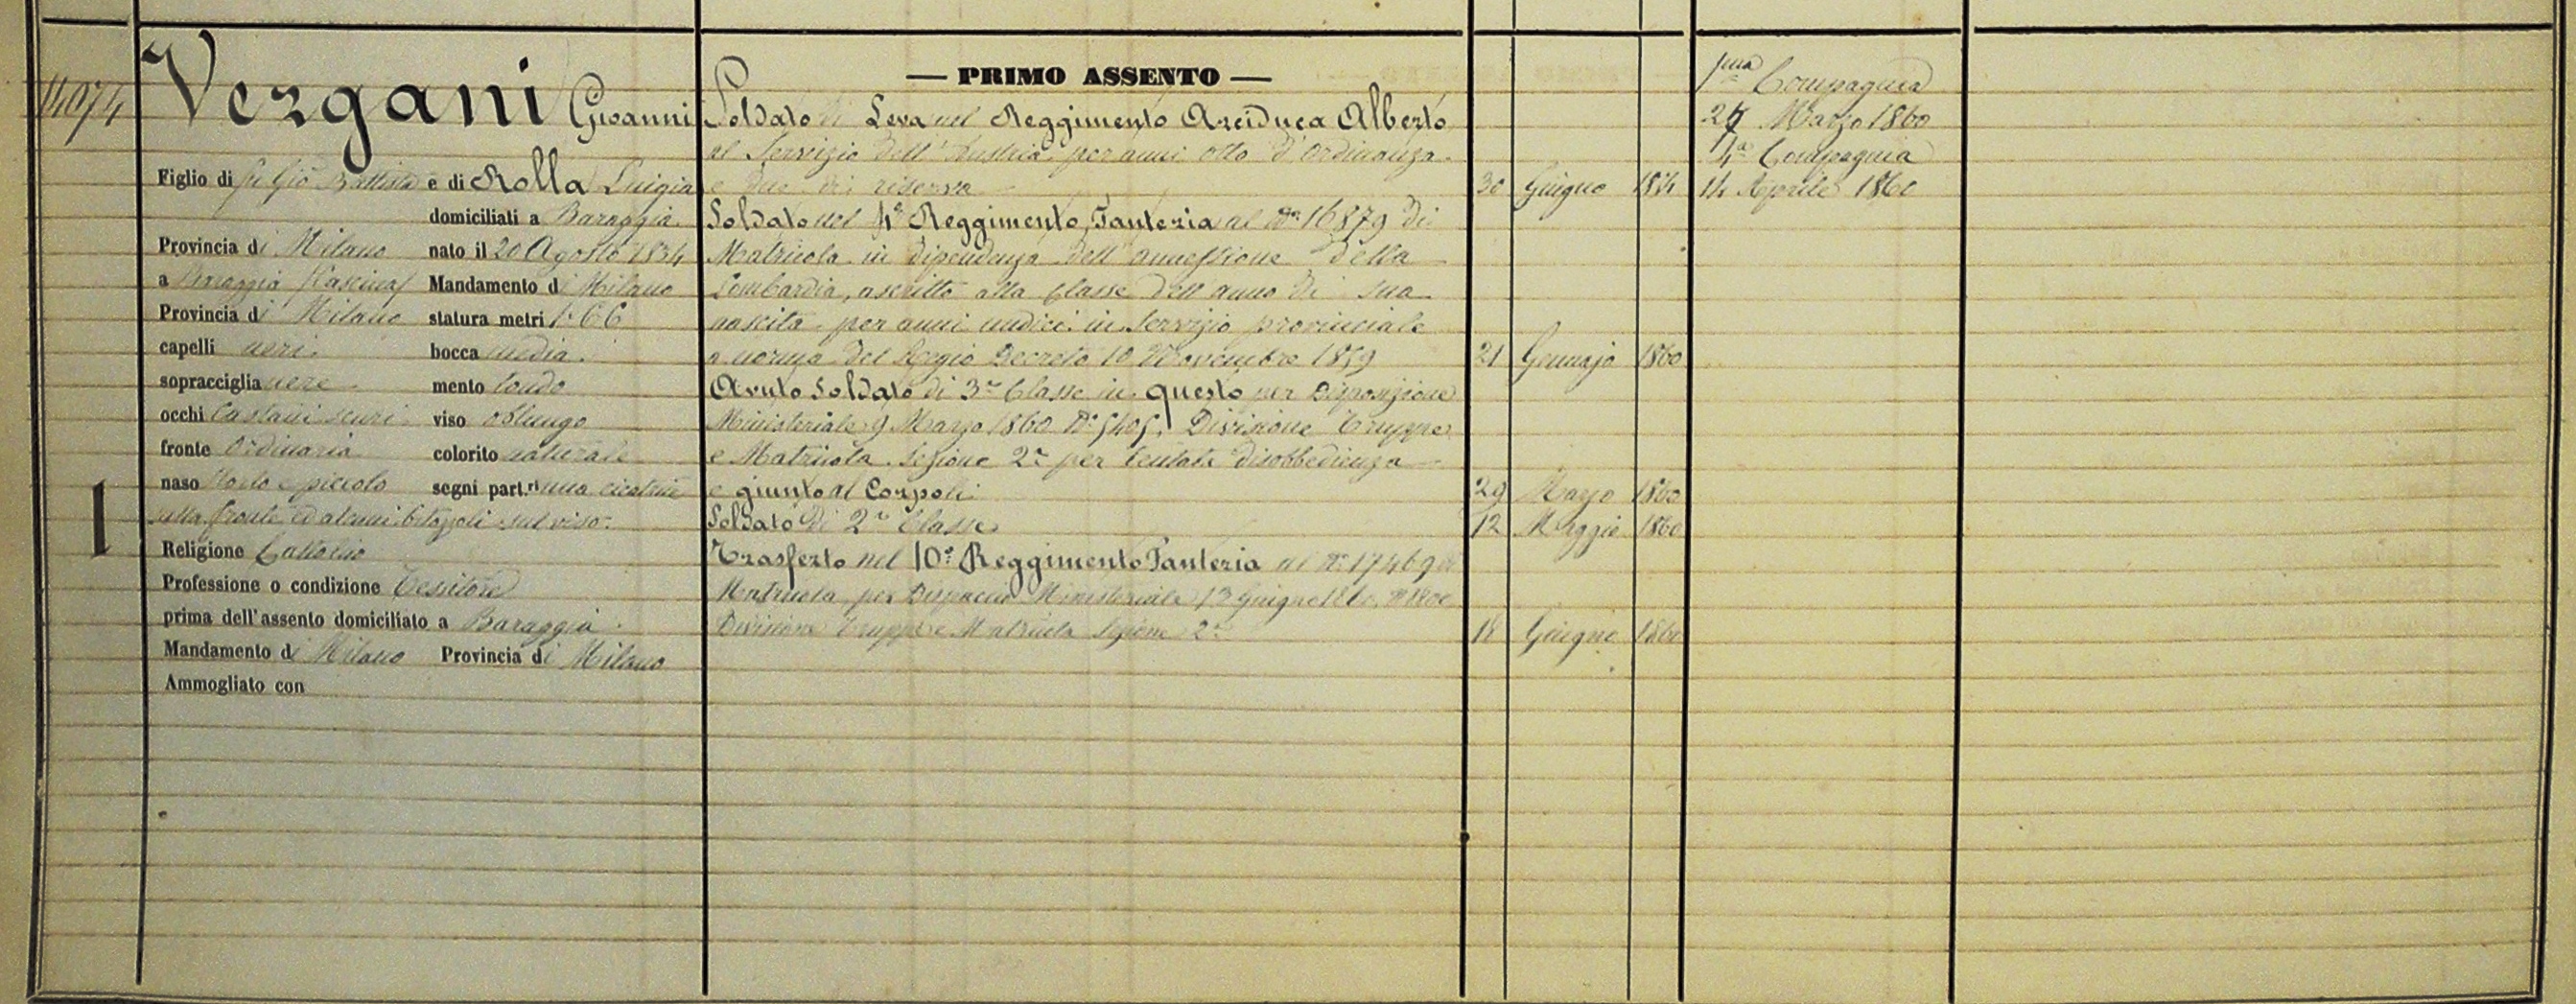 14074
Vergani Gioanni
Figlio di fu Gio Battista e di Rolla Luigia
domiciliati a Baraggia
Provincia di Milano nato il 20 Agosto 1834
a Baraggia (Cascina) Mandamento di Milano
Provincia di Milano statura metri 1. 66
capelli neri. bocca media.
sopracciglia nere mento tondo
occhi Castani scuri viso oblungo
fronte Ordinaria colorito naturale
naso e piccolo segni part.ri una cicatrice
sulla fronte ed alcuni sul viso.
Religione Cattolica
Professione o condizione Tessitore
prima dell'assento domiciliato a Baraggia
Mandamento di Milano Provincia di Milano
Ammogliato con
1
— PRIMO ASSENTO —
Soldato di Leva nel Reggimento Arciduca Alberto
al Servizio dell'Austria per anni otto d'Ordinanza
e due di riserva 30 Giugno
Soldato nel 4° Reggimento Fanteria al N° 16879 di
Matricola in dipendenza dell'annessione della
Lombardia, ascritto alla Classe dell'anno di sua
nascita per anni undici in Servizio provinciale
a norma del Regio Decreto 10 Novembre 1859 21 Gennajo 1860
Avuto Soldato di 3a Classe in questo per Disposizione
Ministeriale 9 Marzo 1860 N° 5405, Divisione Truppe
e Matricola Sezione 2a per tentata disobbedienza
e giunto al Corpo li 29 Marzo 1860
Soldato di 2a Classe 12 Maggio 1860
Trasferto nel 10° Reggimento Fanteria al N° 17469 di
Matricola per Dispaccio Ministeriale 13 Giugno 1860
Divisione Truppe e Matricola Sezione 2a 18 Giugno 1860
1ma Compagnia
Marzo 1860
4a Compagnia
14 Aprile 1860